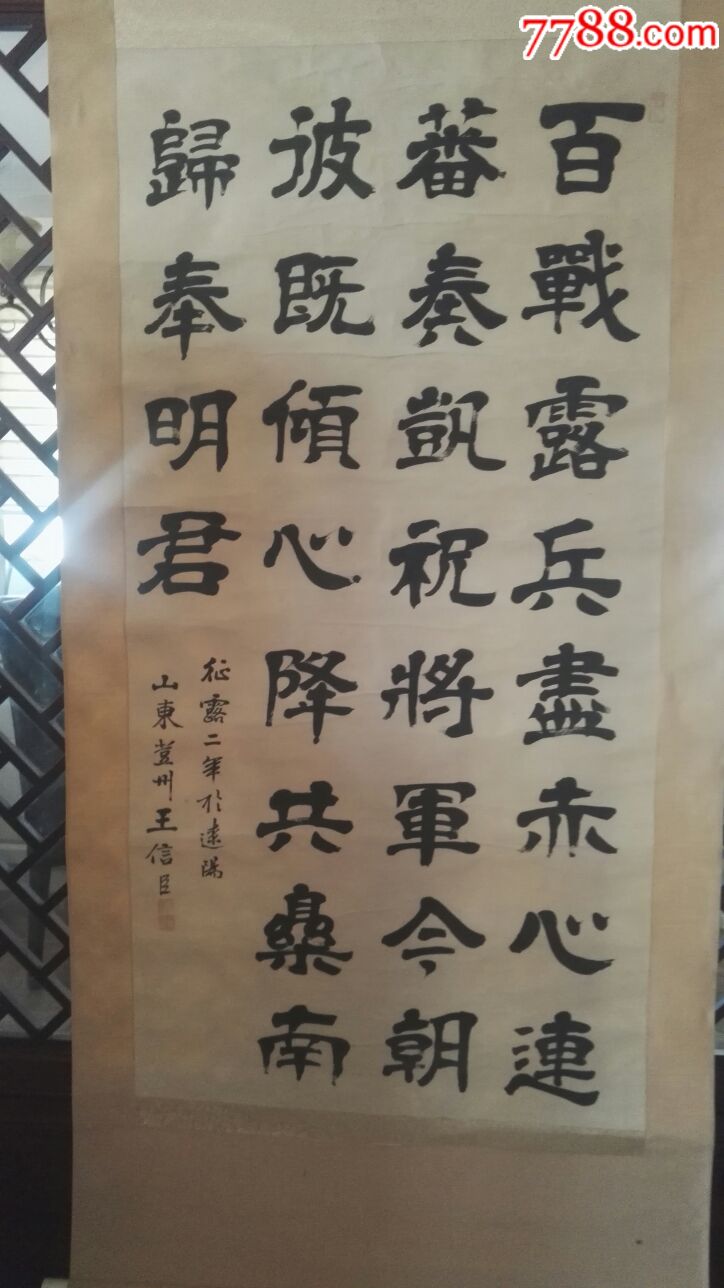 7788.com
百戰露兵盡赤心連
蕃奏凱祝將軍今朝
彼既傾心降共桑南
歸奉明君
征露二年於遼陽
山東登州王信臣